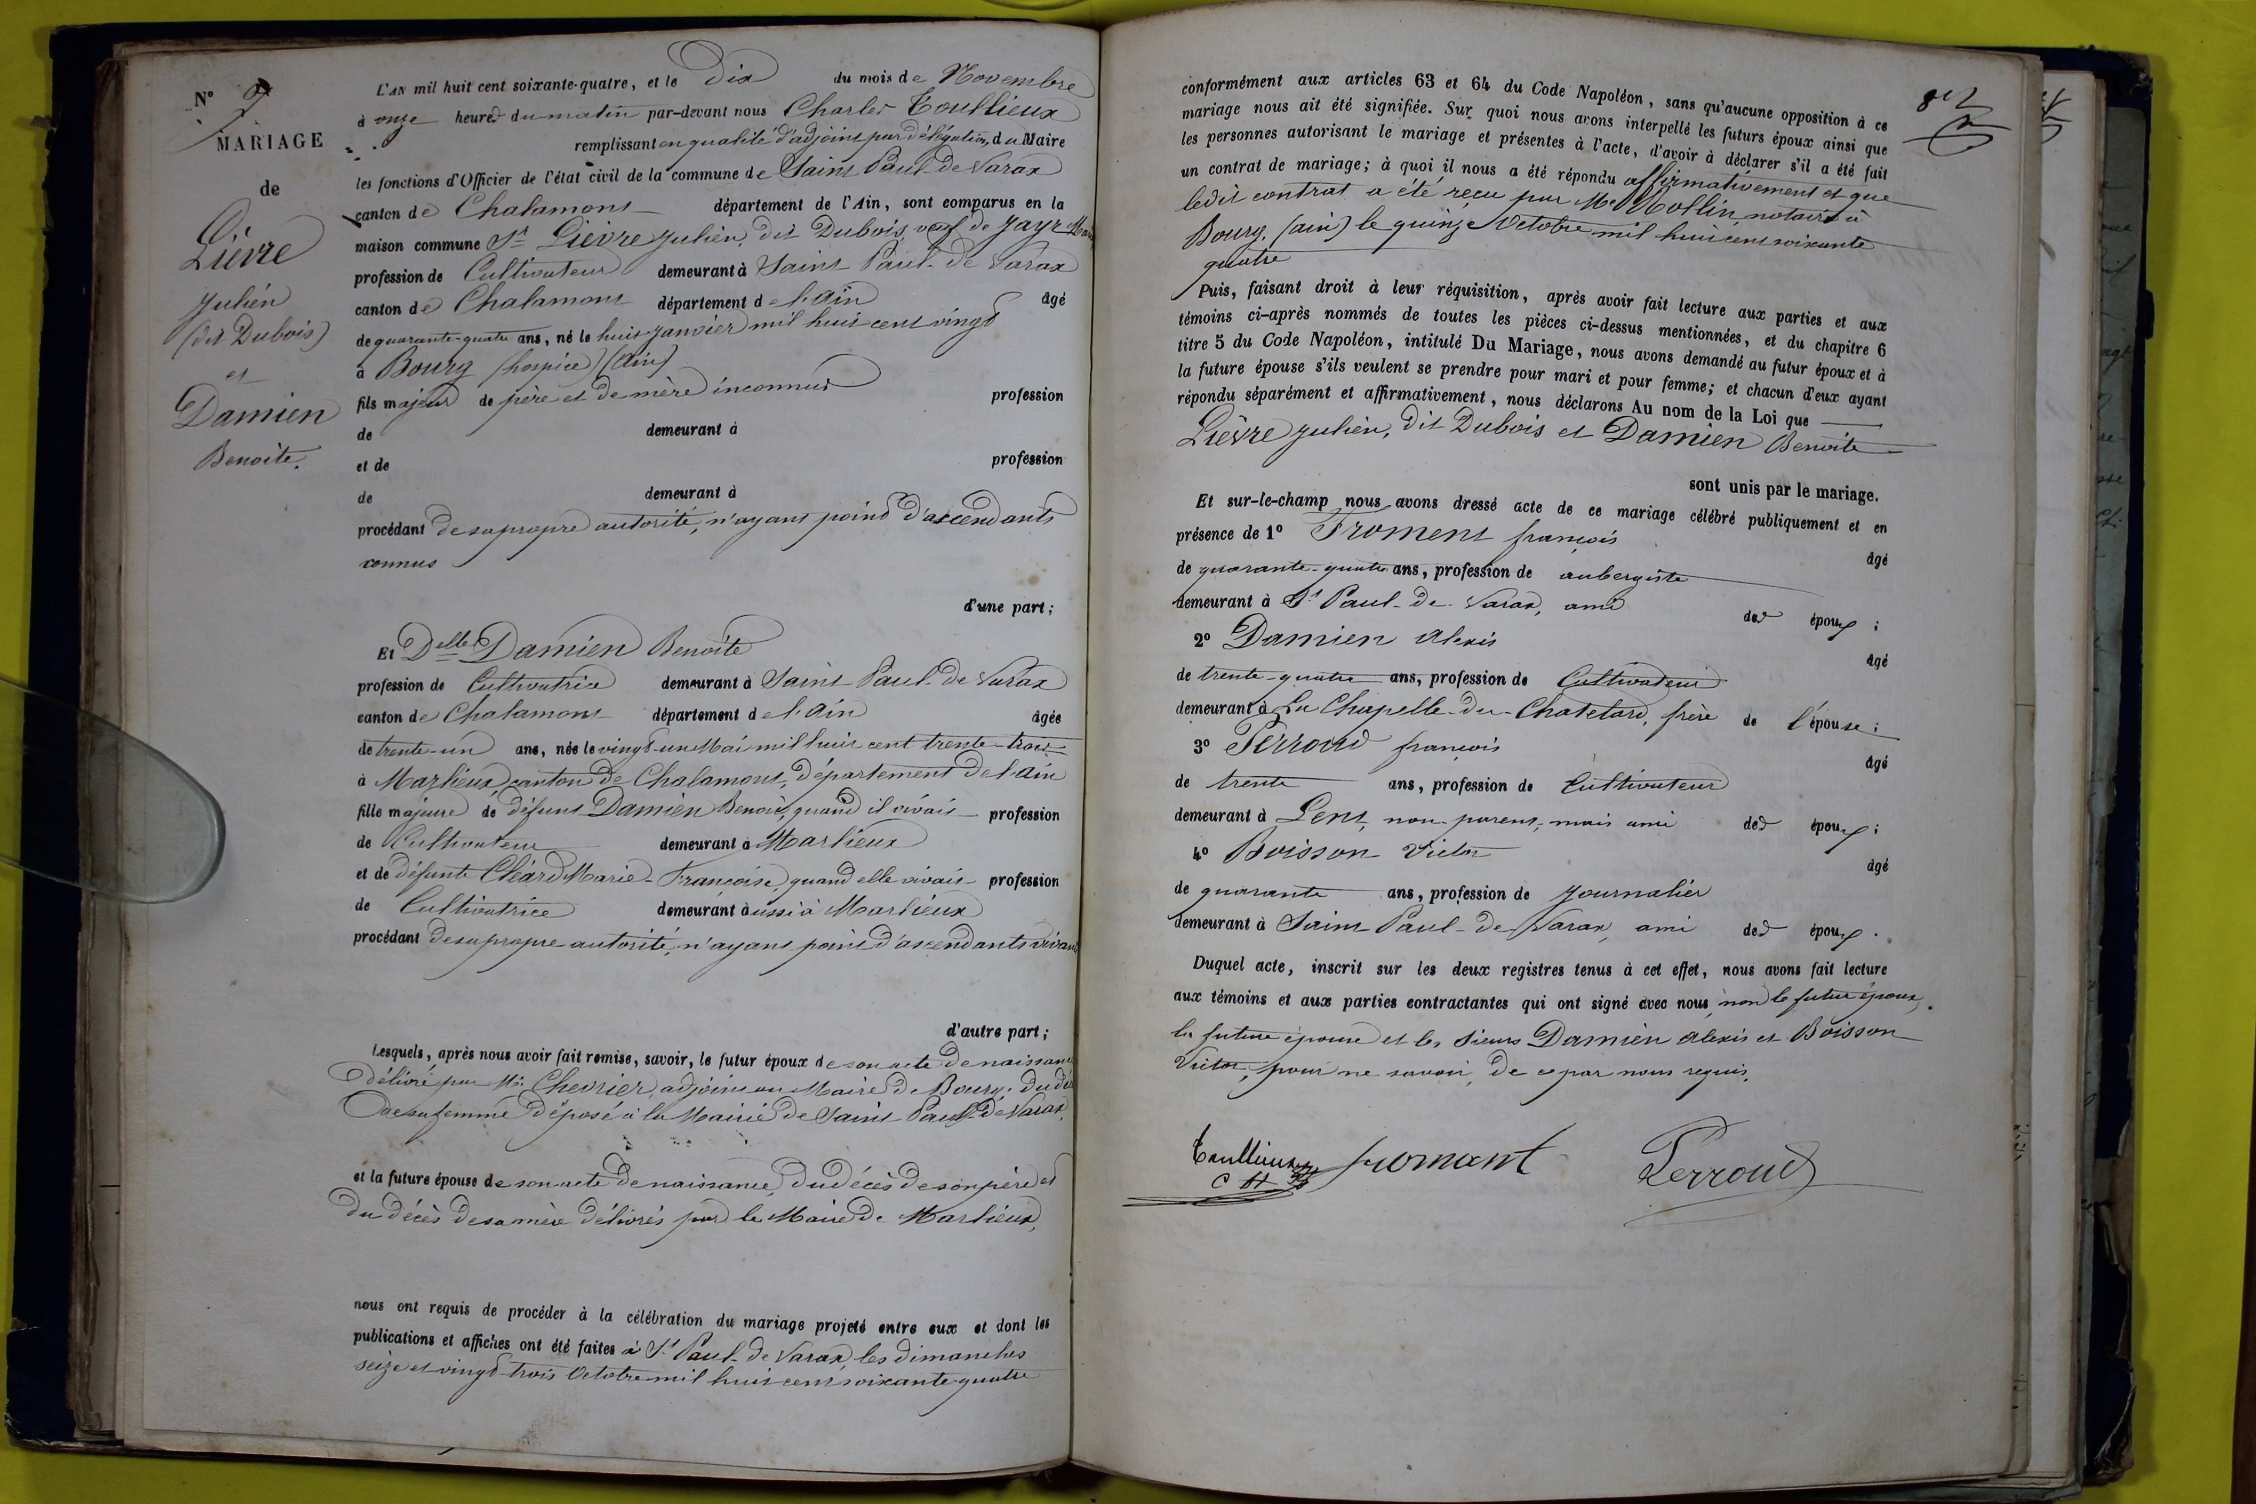 N° 9
MARIAGE
de
Lièvre
Julien
(dit Dubois)
et
Damien
Benoite.
L'AN mil huit cent soixante-quatre, et le Dix du mois de Novembre
à onze heures du matin par-devant nous Charles Toullieux
remplissant en qualité d'adjoint par délégation du Maire
les fonctions d'Officier de l'état civil de la commune de Saint Paul-de Varax
canton de Chalamont département de l'Ain, sont comparus en la
maison commune Sr Lièvre Julien, dit Dubois, veuf de Jayr Marie
profession de Cultivateur demeurant à Saint Paul-de Varax
canton de Chalamont département de l'Ain âgé
de quarante-quatre ans, né le huit janvier mil huit cent vingt
à Bourg (hospice) (Ain)
fils majeur de père et de mère inconnus profession
de demeurant à
et de profession
de demeurant à
procédant de sa propre autorité, n'ayant point d'ascendants
connus
d'une part;
Et Delle Damien Benoîte
profession de Cultivatrice demeurant à Saint Paul-de Varax
canton de Chalamont département de l'Ain âgée
de trente-un ans, née le vingt-un Mai mil huit cent trente-trois
à Marlieux, canton de Chalamont, département de l'Ain
fille majeure de défunt Damien Benoit, quand il vivait profession
de Cultivateur demeurant à Marlieux
et de défunte Cléard Marie-Françoise, quand elle vivait profession
de Cultivatrice demeurant aussi à Marlieux
procédant de sa propre autorité, n'ayant point d'ascendants vivants
d'autre part;
Lesquels, après nous avoir fait remise, savoir, le futur époux de son acte de naissance
délivré par Mr Chevrier, adjoint au Maire de Bourg, du décès
de sa femme déposé à la Mairie de Saint Paul-de Varax,
et la future épouse de son acte de naissance, du décès de son père et
du décès de sa mère délivrés par le Maire de Marlieux,
nous ont requis de procéder à la célébration du mariage projeté entre eux et dont les
publications et affiches ont été faites à St Paul-de Varax, les dimanches
seize et vingt-trois Octobre mil huit cent soixante-quatre
conformément aux articles 63 et 64 du Code Napoléon, sans qu'aucune opposition à ce
mariage nous ait été signifiée. Sur quoi nous avons interpellé les futurs époux ainsi que
les personnes autorisant le mariage et présentes à l'acte, d'avoir à déclarer s'il a été fait
un contrat de mariage; à quoi il nous a été répondu affirmativement et que
ledit contrat a été reçu par Me Mollin, notaire à
Bourg, (ain) le quinze Octobre mil huit cent soixante
quatre
Puis, faisant droit à leur réquisition, après avoir fait lecture aux parties et aux
témoins ci-après nommés de toutes les pièces ci-dessus mentionnées, et du chapitre 6
titre 5 du Code Napoléon, intitulé Du Mariage, nous avons demandé au futur époux et à
la future épouse s'ils veulent se prendre pour mari et pour femme; et chacun d'eux ayant
répondu séparément et affirmativement, nous déclarons Au nom de la Loi que
Lièvre Julien, dit Dubois et Damien Benoîte
sont unis par le mariage.
Et sur-le-champ nous avons dressé acte de ce mariage célébré publiquement et en
présence de 1° Froment françois âgé
de quarante-quatre ans, profession de aubergiste
demeurant à St Paul-de-Varax, ami des époux;
2° Damien Alexis âgé
de trente-quatre ans, profession de Cultivateur
demeurant à La Chapelle-du-Chatelard, frère de l'épouse;
3° Perroud françois âgé
de trente ans, profession de Cultivateur
demeurant à Lent, non parent, mais ami des époux;
4° Boisson Victor âgé
de quarante ans, profession de Journalier
demeurant à Saint Paul-de Varax, ami des époux.
Duquel acte, inscrit sur les deux registres tenus à cet effet, nous avons fait lecture
aux témoins et aux parties contractantes qui ont signé avec nous, non le futur époux,
la future épouse et les sieurs Damien Alexis et Boisson
Victor, pour ne savoir, de ce par nous requis.
Toullieux fromant Perroud
C H